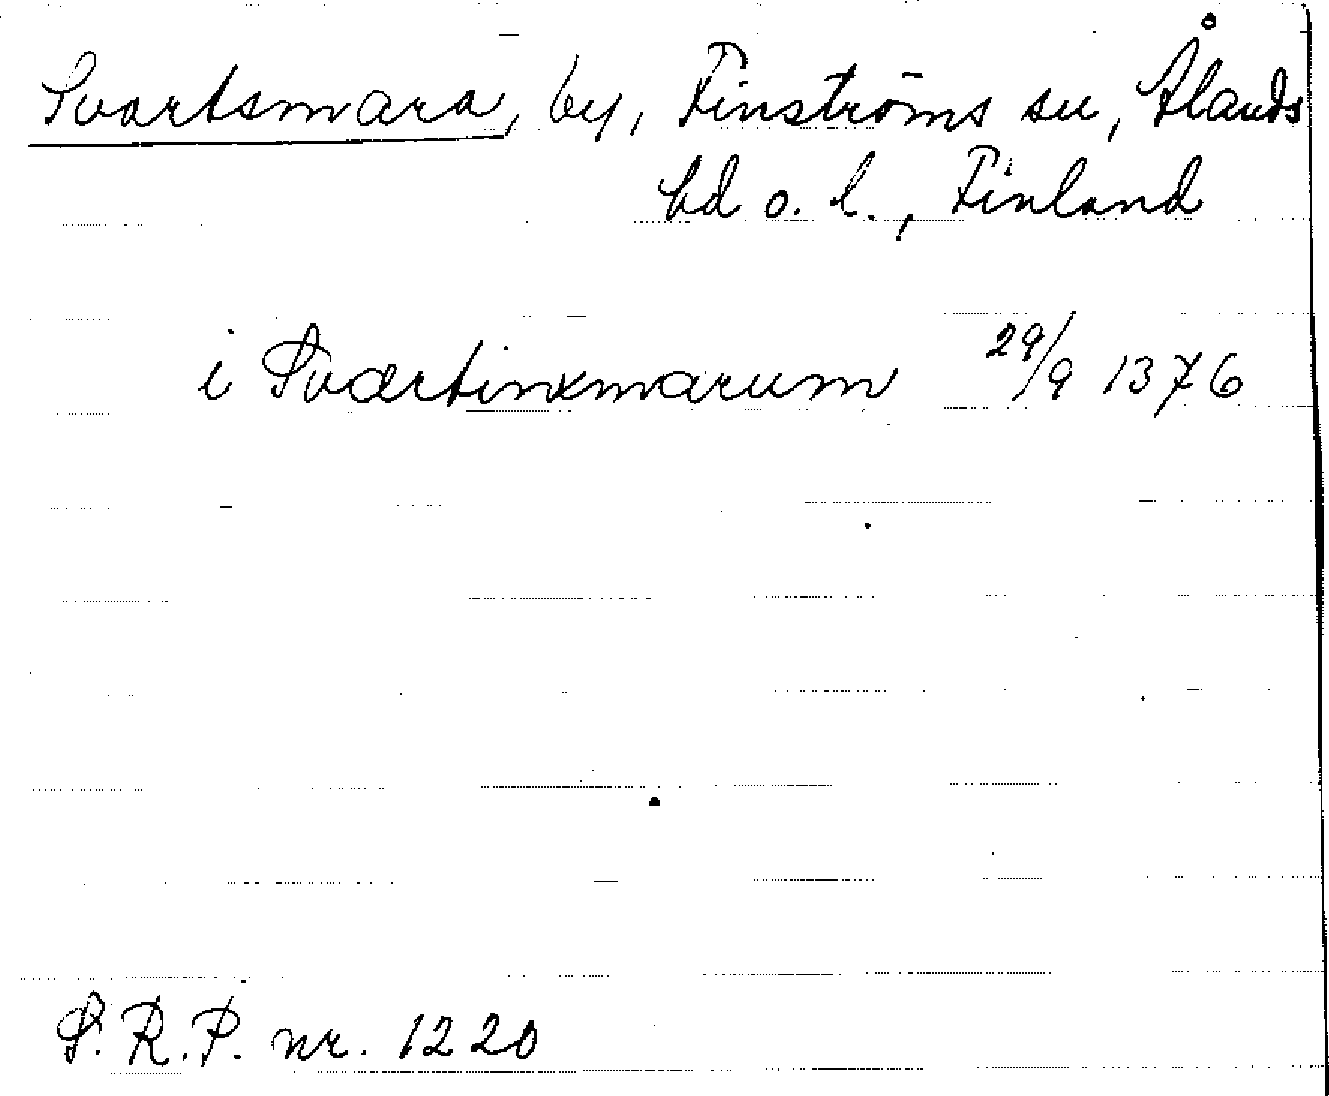 Svartsmara, by, Finströms sn, Ålands
bd o. l., Finland
i Sværtinxmarum 29/9 1376
S.R.P. nr. 1220